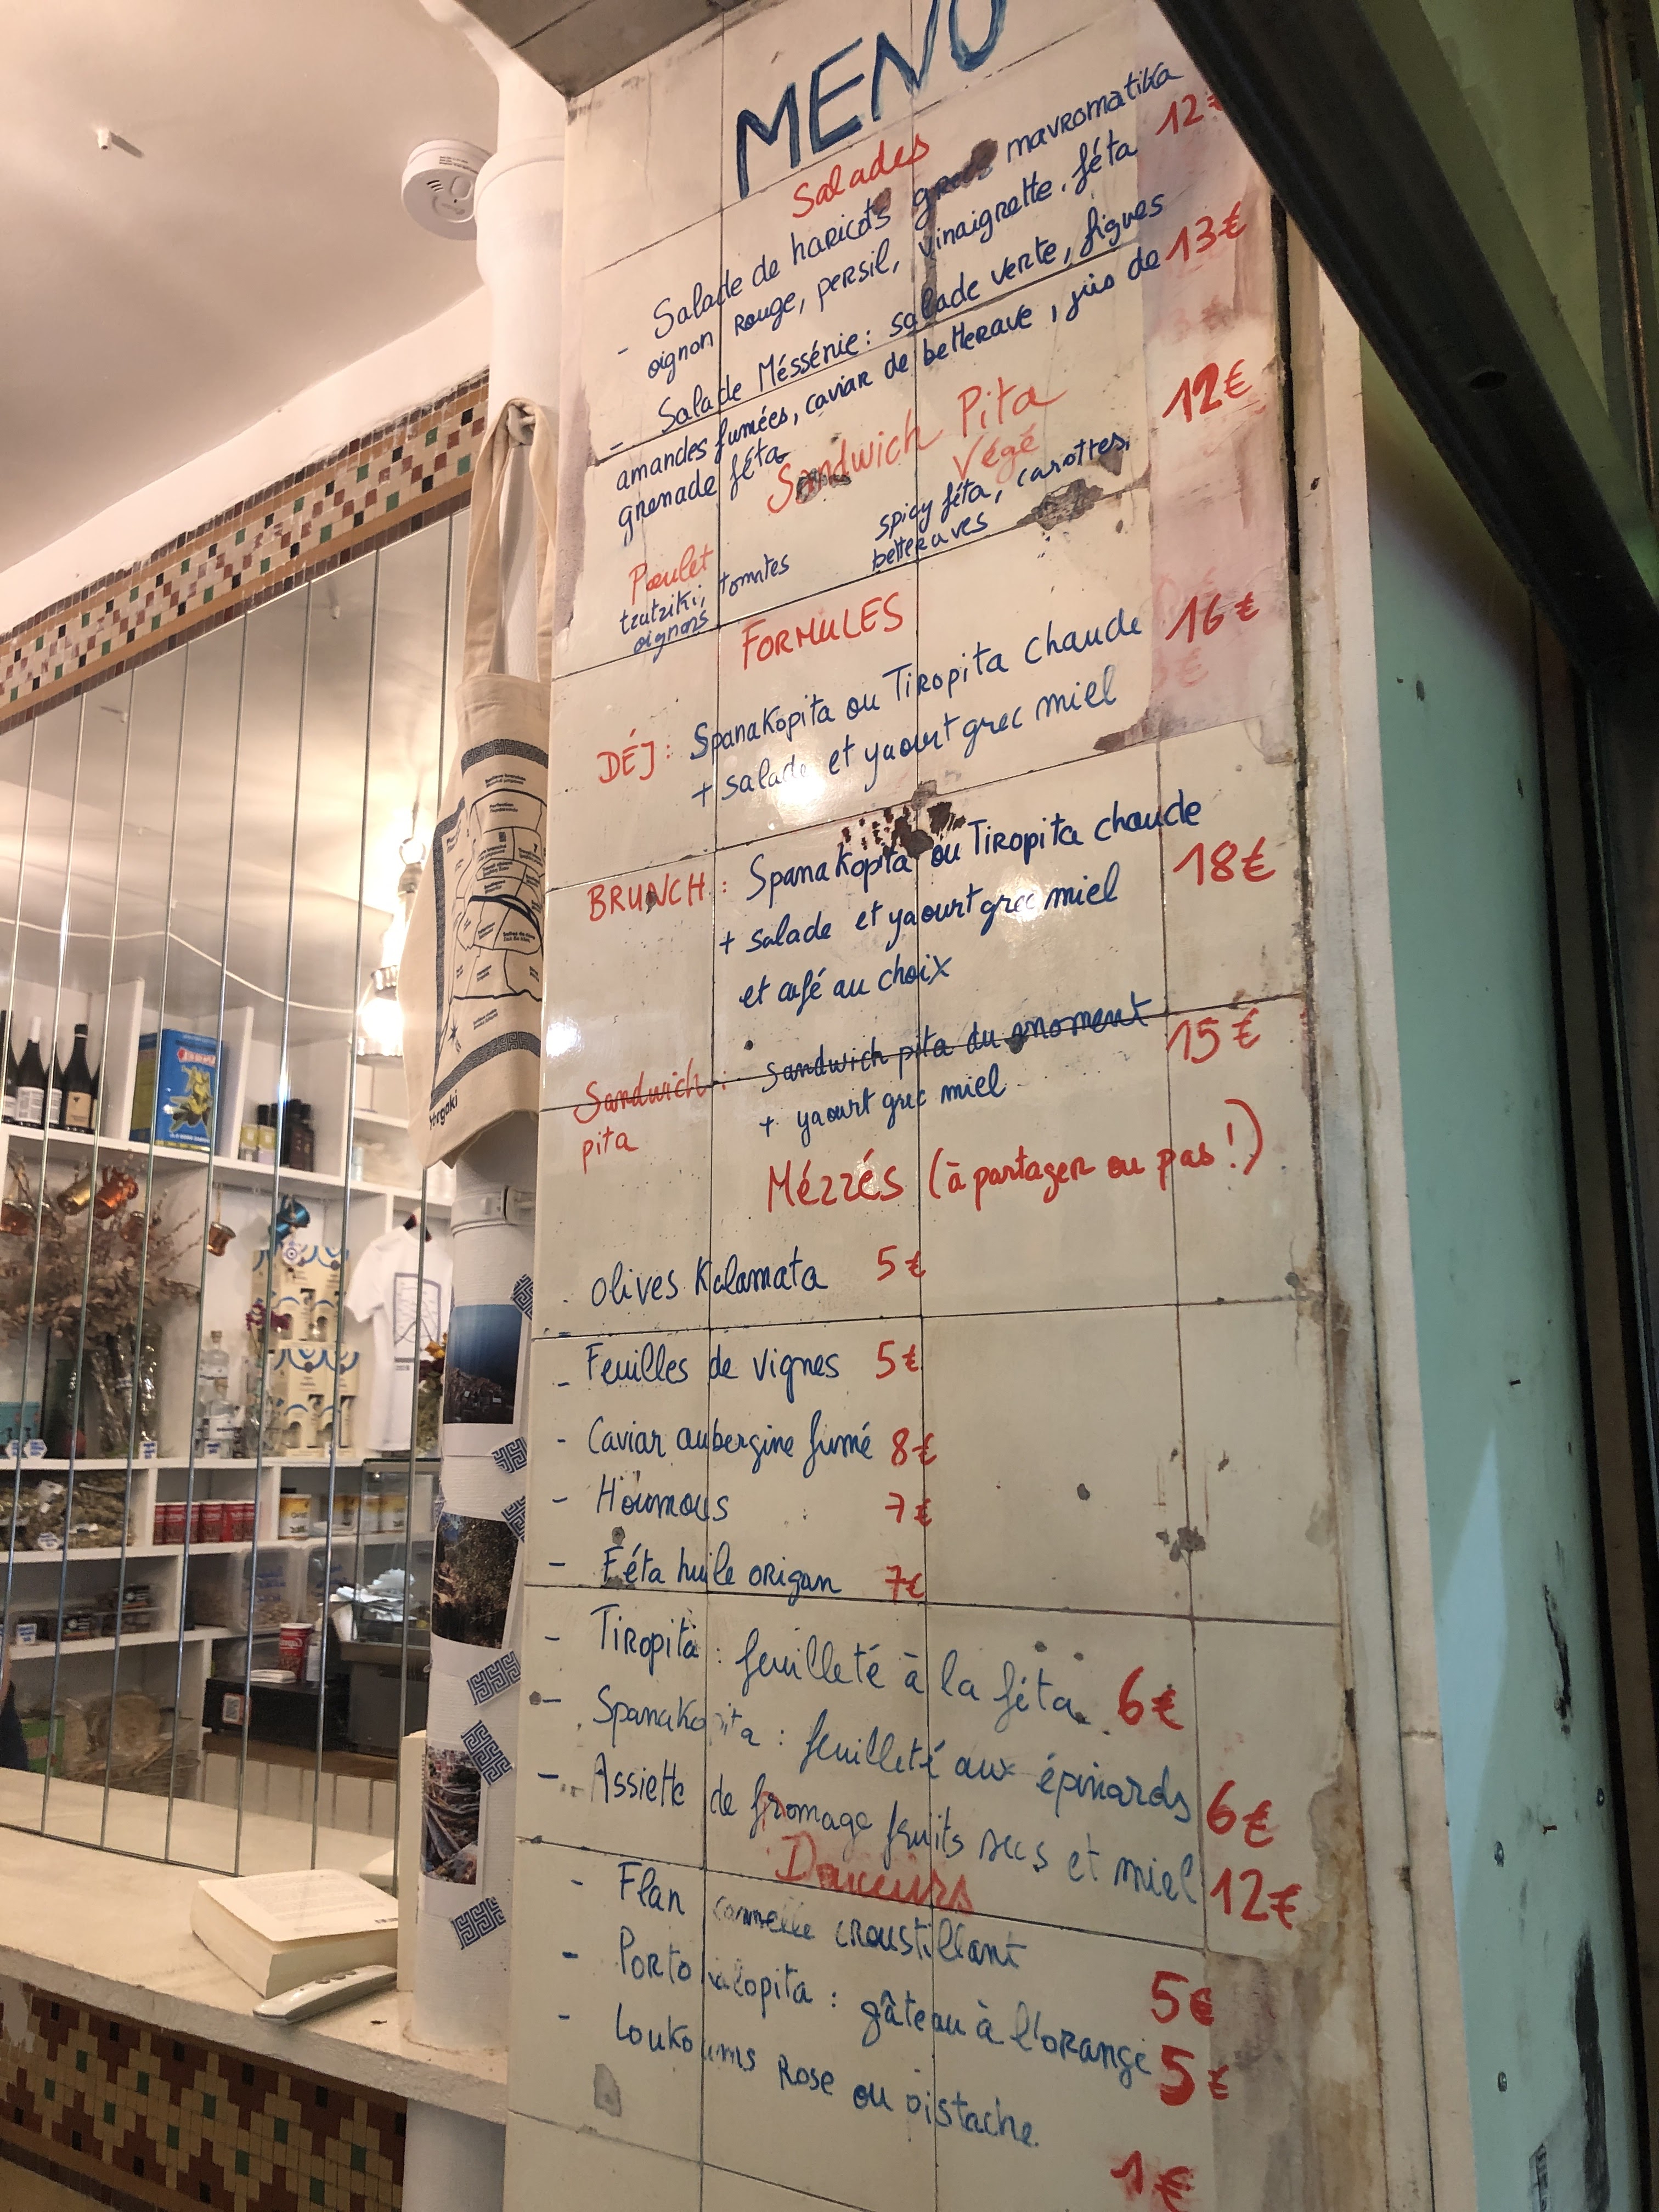 MENU
Salades
- Salade de haricots grecs mavromatika
oignon rouge, persil, vinaigrette, féta
12€
- Salade Méssénie : salade verte, figues
amandes fumées, caviar de betterave, jus de
grenade féta
13€
Sandwich Pita
12€
Poulet
tzatziki, tomates
oignons
Végé
spicy féta, carottes,
betteraves
FORMULES
DÉJ : Spanakopita ou Tiropita chaude
+ salade et yaourt grec miel
16€
BRUNCH : Spanakopita ou Tiropita chaude
+ salade et yaourt grec miel
et café au choix
18€
Sandwich : Sandwich pita du moment
pita + yaourt grec miel
15€
Mézzés (à partager ou pas !)
- olives Kalamata 5€
- Feuilles de vignes 5€
- Caviar aubergine fumé 8€
- Houmous 7€
- Féta huile origan 7€
- Tiropita : feuilleté à la féta 6€
- Spanakopita : feuilleté aux épinards 6€
- Assiette de fromage fruits secs et miel 12€
Douceurs
- Flan cannelle croustillant 5€
- Portokalopita : gâteau à l'orange 5€
- Loukoums Rose ou pistache 1€